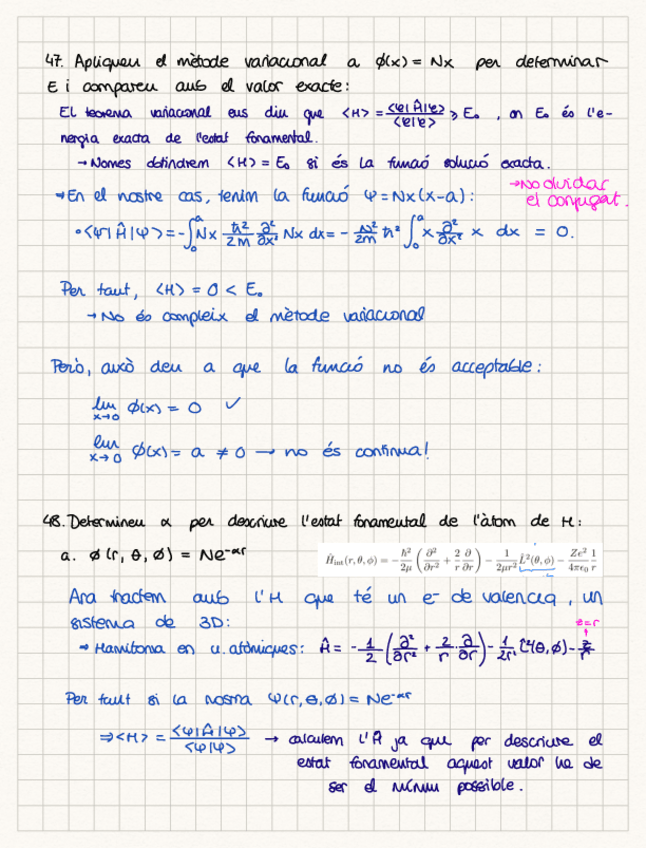 47. Apliqueu el mètode variacional a ϕ(x) = Nx per determinar
E i compareu amb el valor exacte:
El teorema variacional ens diu que <H> = <φ|Ĥ|φ>/<φ|φ> ≥ E₀, on E₀ és l'e-
nergia exacta de l'estat fonamental.
→ Nomes obtindrem <H> = E₀ si és la funció solució exacta.
→ En el nostre cas, tenim la funció Ψ = Nx(x-a):
→ No olvidar
el conjugat.
• <Ψ|Ĥ|Ψ> = -∫₀ᵃ Nx ħ²/2m ∂²/∂x² Nx dx = - N²/2m ħ² ∫₀ᵃ x ∂²/∂x² x dx = 0.
Per tant, <H> = 0 < E₀
→ No és compleix el mètode variacional
Però, això deu a que la funció no és acceptable:
lim x→0 ϕ(x) = 0 ✓
lim x→0 ϕ(x) = a ≠ 0 → no és continua!
48. Determineu α per descriure l'estat fonamental de l'àtom de H:
a. ϕ(r, θ, ϕ) = Ne^-αr
Ĥint(r, θ, ϕ) = -ħ²/2μ (∂²/∂r² + 2/r ∂/∂r) - 1/2μr² L̂²(θ, ϕ) - Ze²/4πϵ₀ 1/r
Ara tractem amb l'H que té un e⁻ de valencia, un
sistema de 3D:
z=r
→ Hamiltonià en u. atòmiques: Ĥ = -1/2 (∂²/∂r² + 2/r · ∂/∂r) - 1/2r² L̂²(θ, ϕ) - z/r
Per tant si la nostra Ψ(r, θ, ϕ) = Ne^-αr
⇒ <H> = <Ψ|Ĥ|Ψ>/<Ψ|Ψ> → calculem l'Ĥ ja que per descriure el
estat fonamental aquest valor ha de
ser el mínim possible.